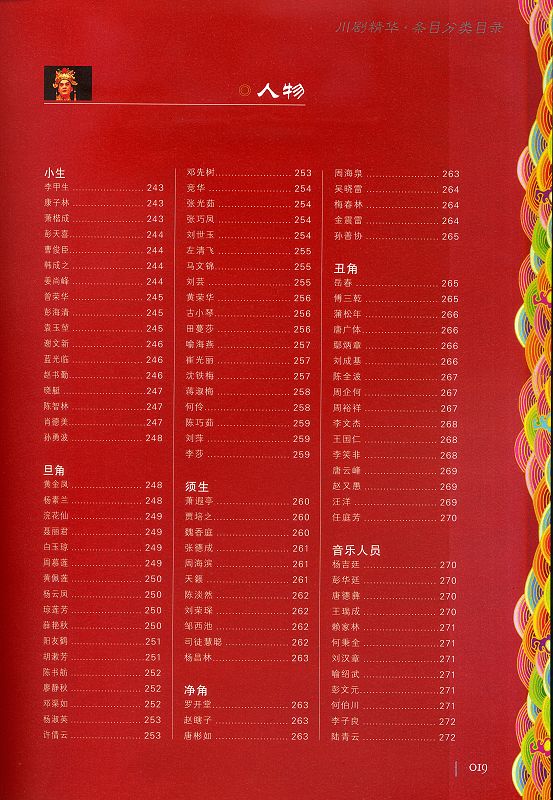 川剧精华·条目分类目录
◎人物
小生
李甲生 243
康子林 243
萧楷成 243
彭天喜 244
曹俊臣 244
韩成之 244
姜尚峰 244
曾荣华 245
彭海清 245
袁玉堃 245
谢文新 246
蓝光临 246
赵书勤 246
晓艇 247
陈智林 247
肖德美 247
孙勇波 248
旦角
黄金凤 248
杨素兰 248
浣花仙 249
聂丽君 249
白玉琼 249
周慕莲 249
黄佩莲 250
杨云凤 250
琼莲芳 250
薛艳秋 250
阳友鹤 251
胡漱芳 251
陈书舫 252
廖静秋 252
邓渠如 252
杨淑英 253
许倩云 253
邓先树 253
竞华 254
张光茹 254
张巧凤 254
刘世玉 254
左清飞 255
马文锦 255
刘芸 255
黄荣华 256
古小琴 256
田蔓莎 256
喻海燕 257
崔光丽 257
沈铁梅 257
蒋淑梅 258
何伶 258
陈巧茹 259
刘萍 259
李莎 259
须生
萧遐亭 260
贾培之 260
魏香庭 260
张德成 261
周海滨 261
天籁 261
陈淡然 262
刘荣琛 262
邹西池 262
司徒慧聪 262
杨昌林 263
净角
罗开堂 263
赵瞎子 263
唐彬如 263
周海泉 263
吴晓雷 264
梅春林 264
金震雷 264
孙善协 265
丑角
岳春 265
傅三乾 265
蒲松年 266
唐广体 266
鄢炳章 266
刘成基 266
陈全波 267
周企何 267
周裕祥 267
李文杰 268
王国仁 268
李笑非 268
唐云峰 269
赵又愚 269
汪洋 269
任庭芳 270
音乐人员
杨吉廷 270
彭华廷 270
唐德彝 270
王瑞成 270
赖家林 271
何秉全 271
刘汉章 271
喻绍武 271
彭文元 271
何伯川 271
李子良 272
陆青云 272
019